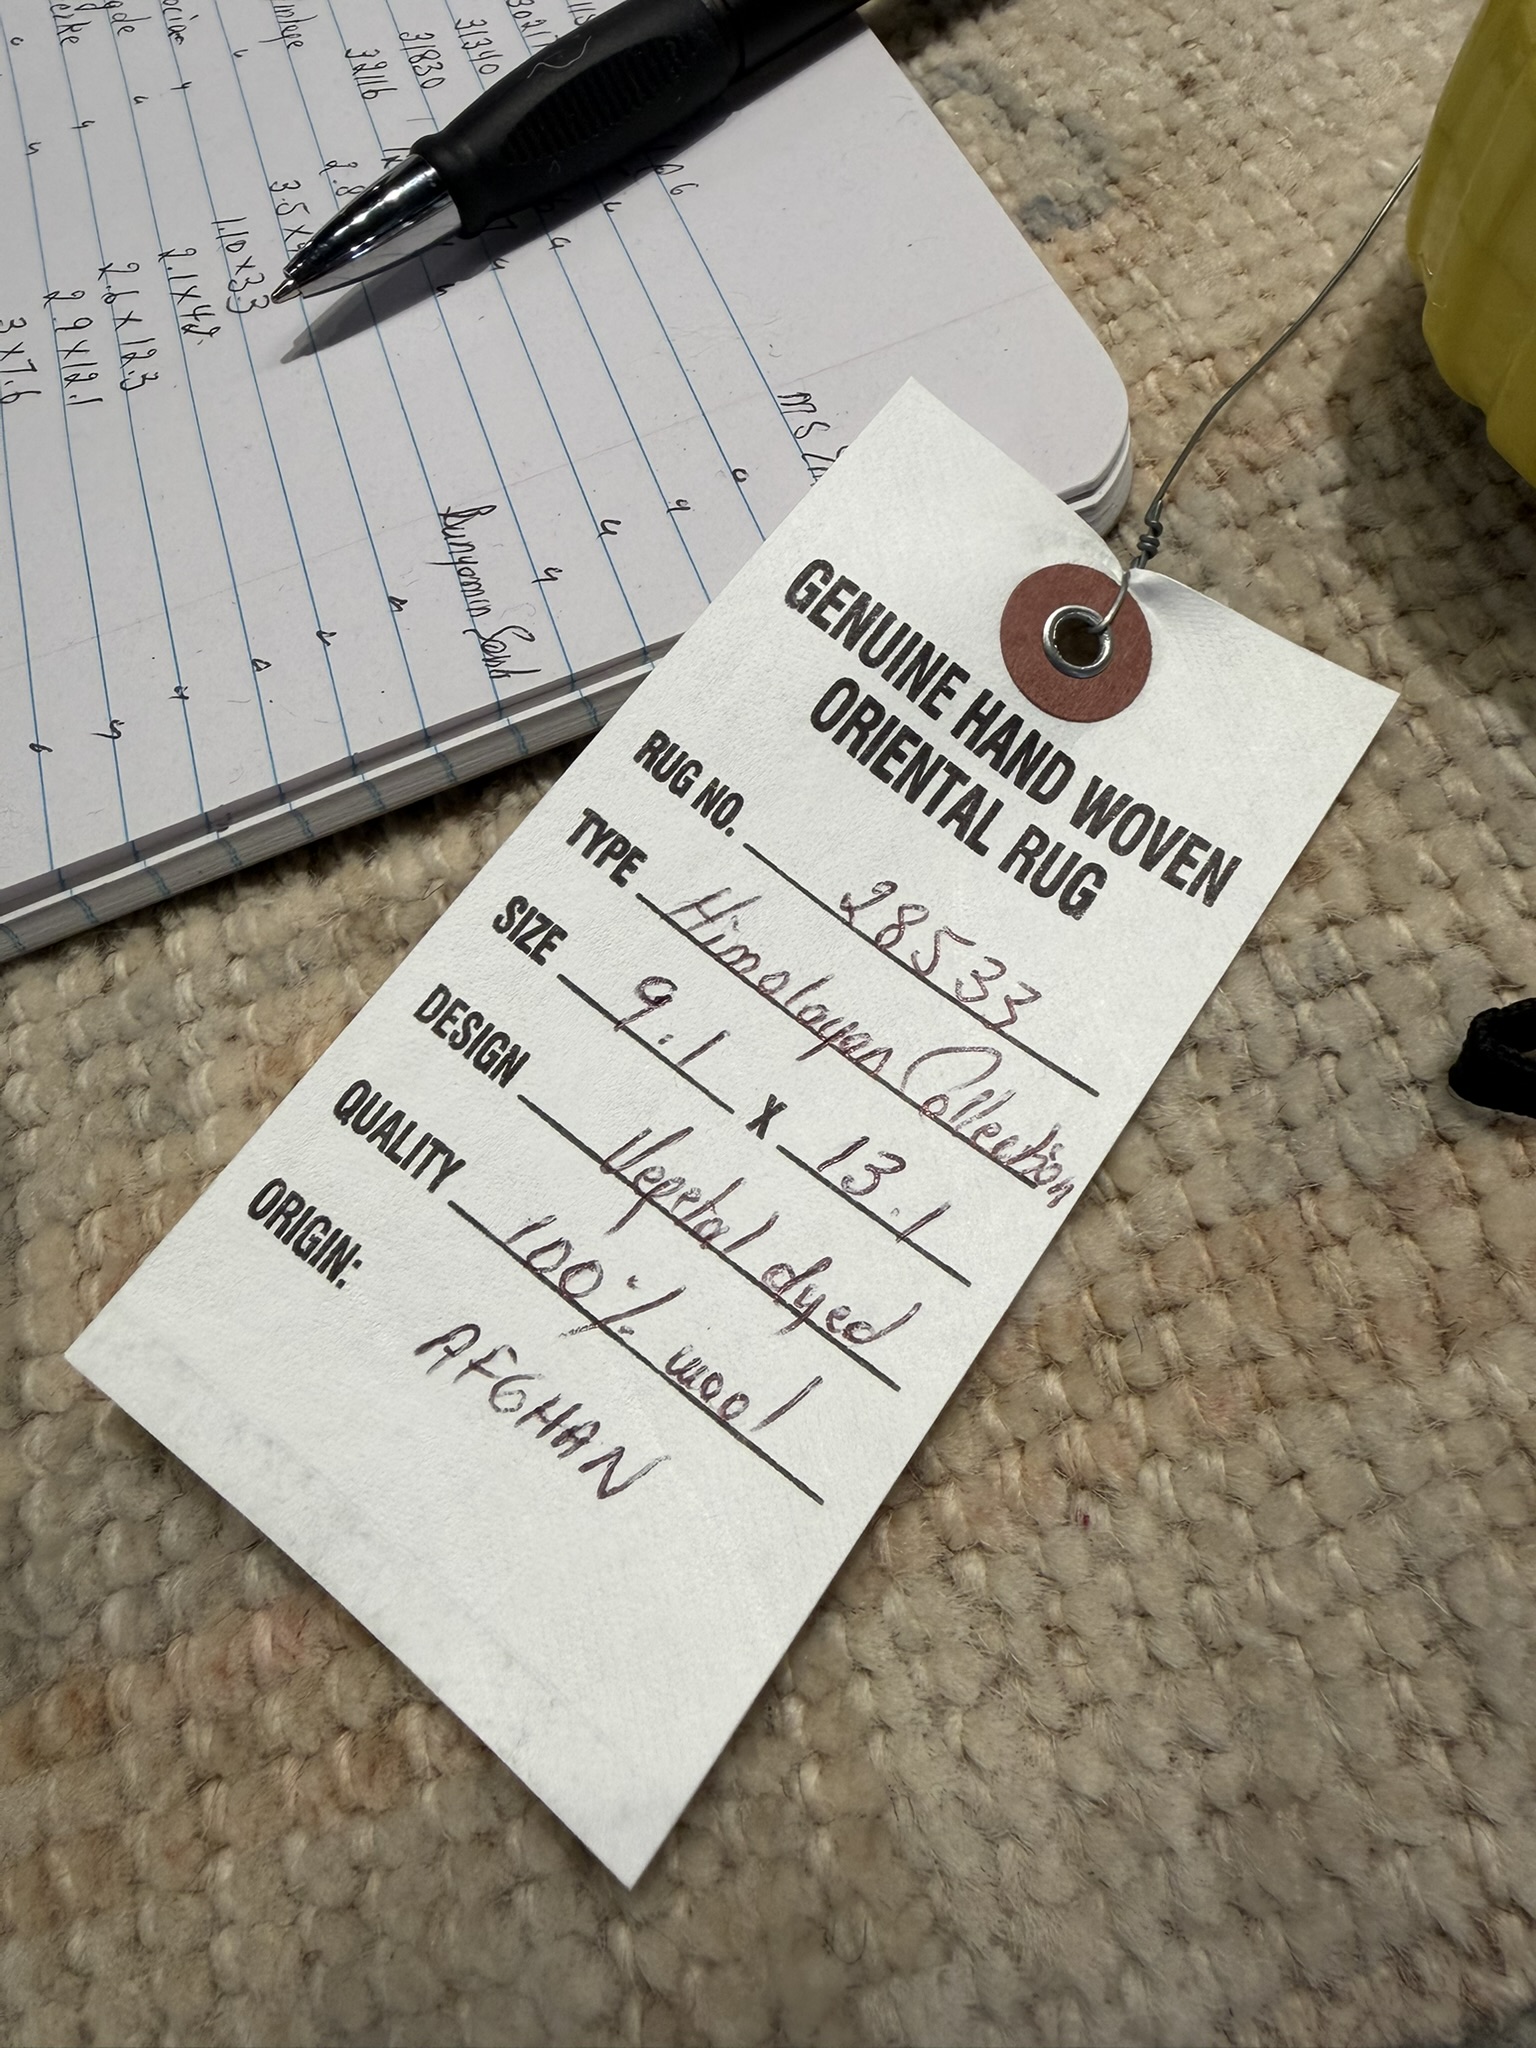 GENUINE HAND WOVEN
ORIENTAL RUG
RUG NO. 28533
TYPE Himalayan Collection
SIZE 9.1 X 13.1
DESIGN Vegetal dyed
QUALITY 100% wool
ORIGIN:
AFGHAN
31340
31830
32116
3.5 x
1.10 x 3.3
2.1 x 4.2
2.6 x 12.3
2.9 x 12.1
3 x 7.6
Bunyamin